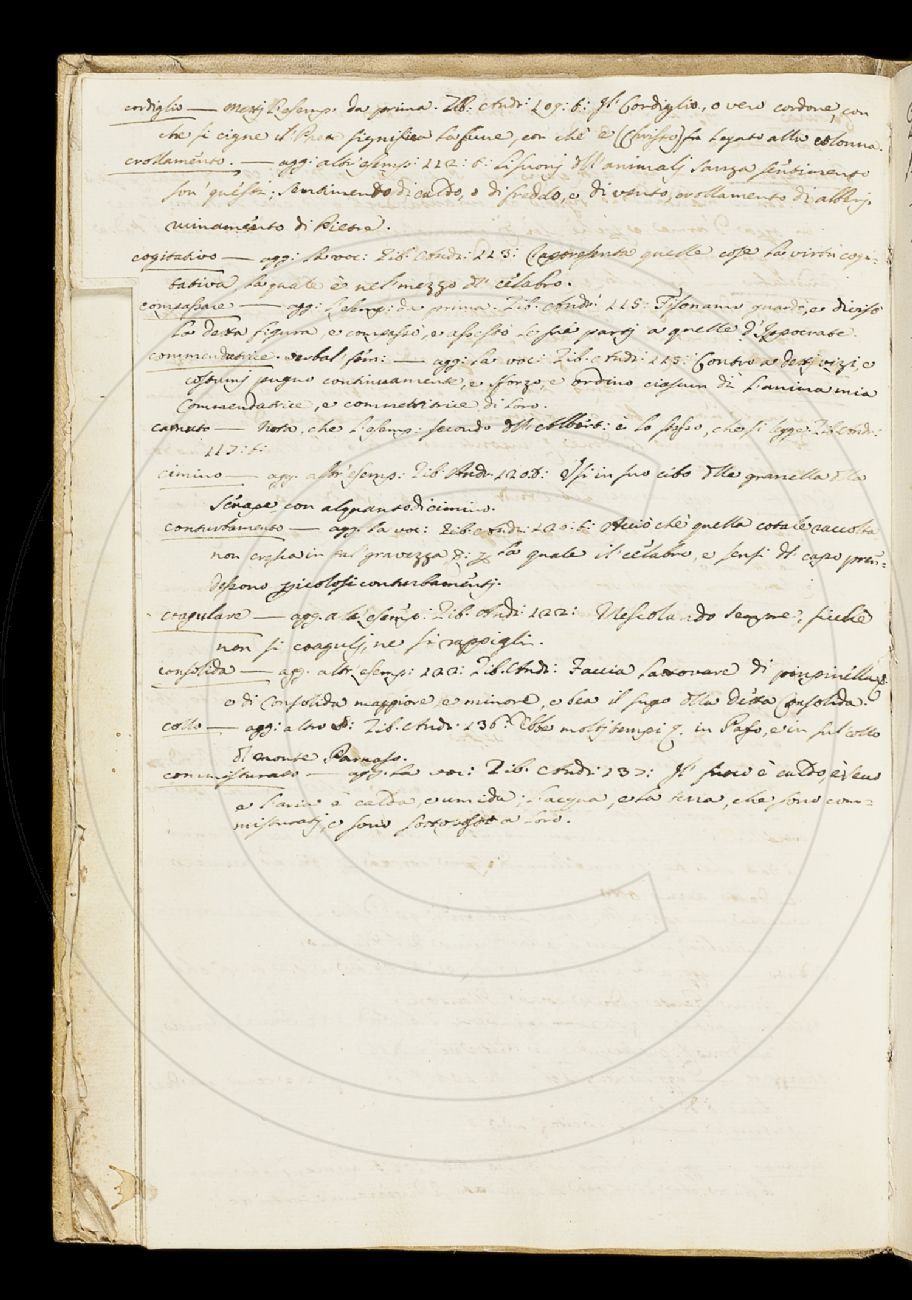 cordiglio — metti l'esemp. da prima. Lib: Andr: 109: t: Il Cordiglio, o vero cordone, con
che si cigne il Prete significa la fune, con che è (Cristo) fu legato alla colonna.
crollamento. — agg: altr'esemp: 112: t: animali sanza sentimento
son questi; sentimento di caldo, o di freddo, o di vento, crollamento di alberj
ruinamento di Pietre.
cogitativo — agg: la voc: Lib: Andr: 113: Rapresenta quelle cose la virtù cogi-
tativa la quale è nel mezzo del celabro.
compassare — agg: l'esemp: da prima. Lib: Andr: 115: guardò, e divisò
la detta figura, e compassò, e le sue partj a quelle d'Ippocrate.
commendatrice. verbal fem: — agg: la voc: Lib: Andr: 115: Contro a detti vizj, e
costumj pugno continuamente, e sforzo, e ordino ciascun dì l'anima mia
Commendatrice, e commettitrice di loro.
— Nota, che l'esemp: secondo dell' è lo stesso, che si legge Lib: Andr:
117: t:
cimino — agg. altr'esemp: Lib: Andr: 120: t: in suo cibo delle granella della
Senape con alquanto di cimino.
conturbamento — agg: la voc: Lib: Andr: 120: t: Acciò chè quella cotale raccolta
non cresca in tal gravezza la quale il celabro, e sensi del capo pren-
dessono picolosi conturbamentj.
coagulare — agg: altr'esemp: Lib: Andr: 122: Mescolando sempre, sicchè
non si coagulj, ne si rappigli.
consolida — agg: altr'esemp: 122: Lib: Andr: Faccia lattovare di pimpinella,
o di Consolida maggiore, e minore, e bea il sugo della detta Consolida.
collo — agg: altro Lib: Andr: 136: Ebbe molti tempi in Pafo, e in sul collo
di monte Parnaso.
commisturato — agg: la voc: Lib: Andr: 137: Il fuoco è caldo, e secco
e l'aria è calda, e umida; l'acqua, e la terra, che sono com-
misturatj, e sono a loro.